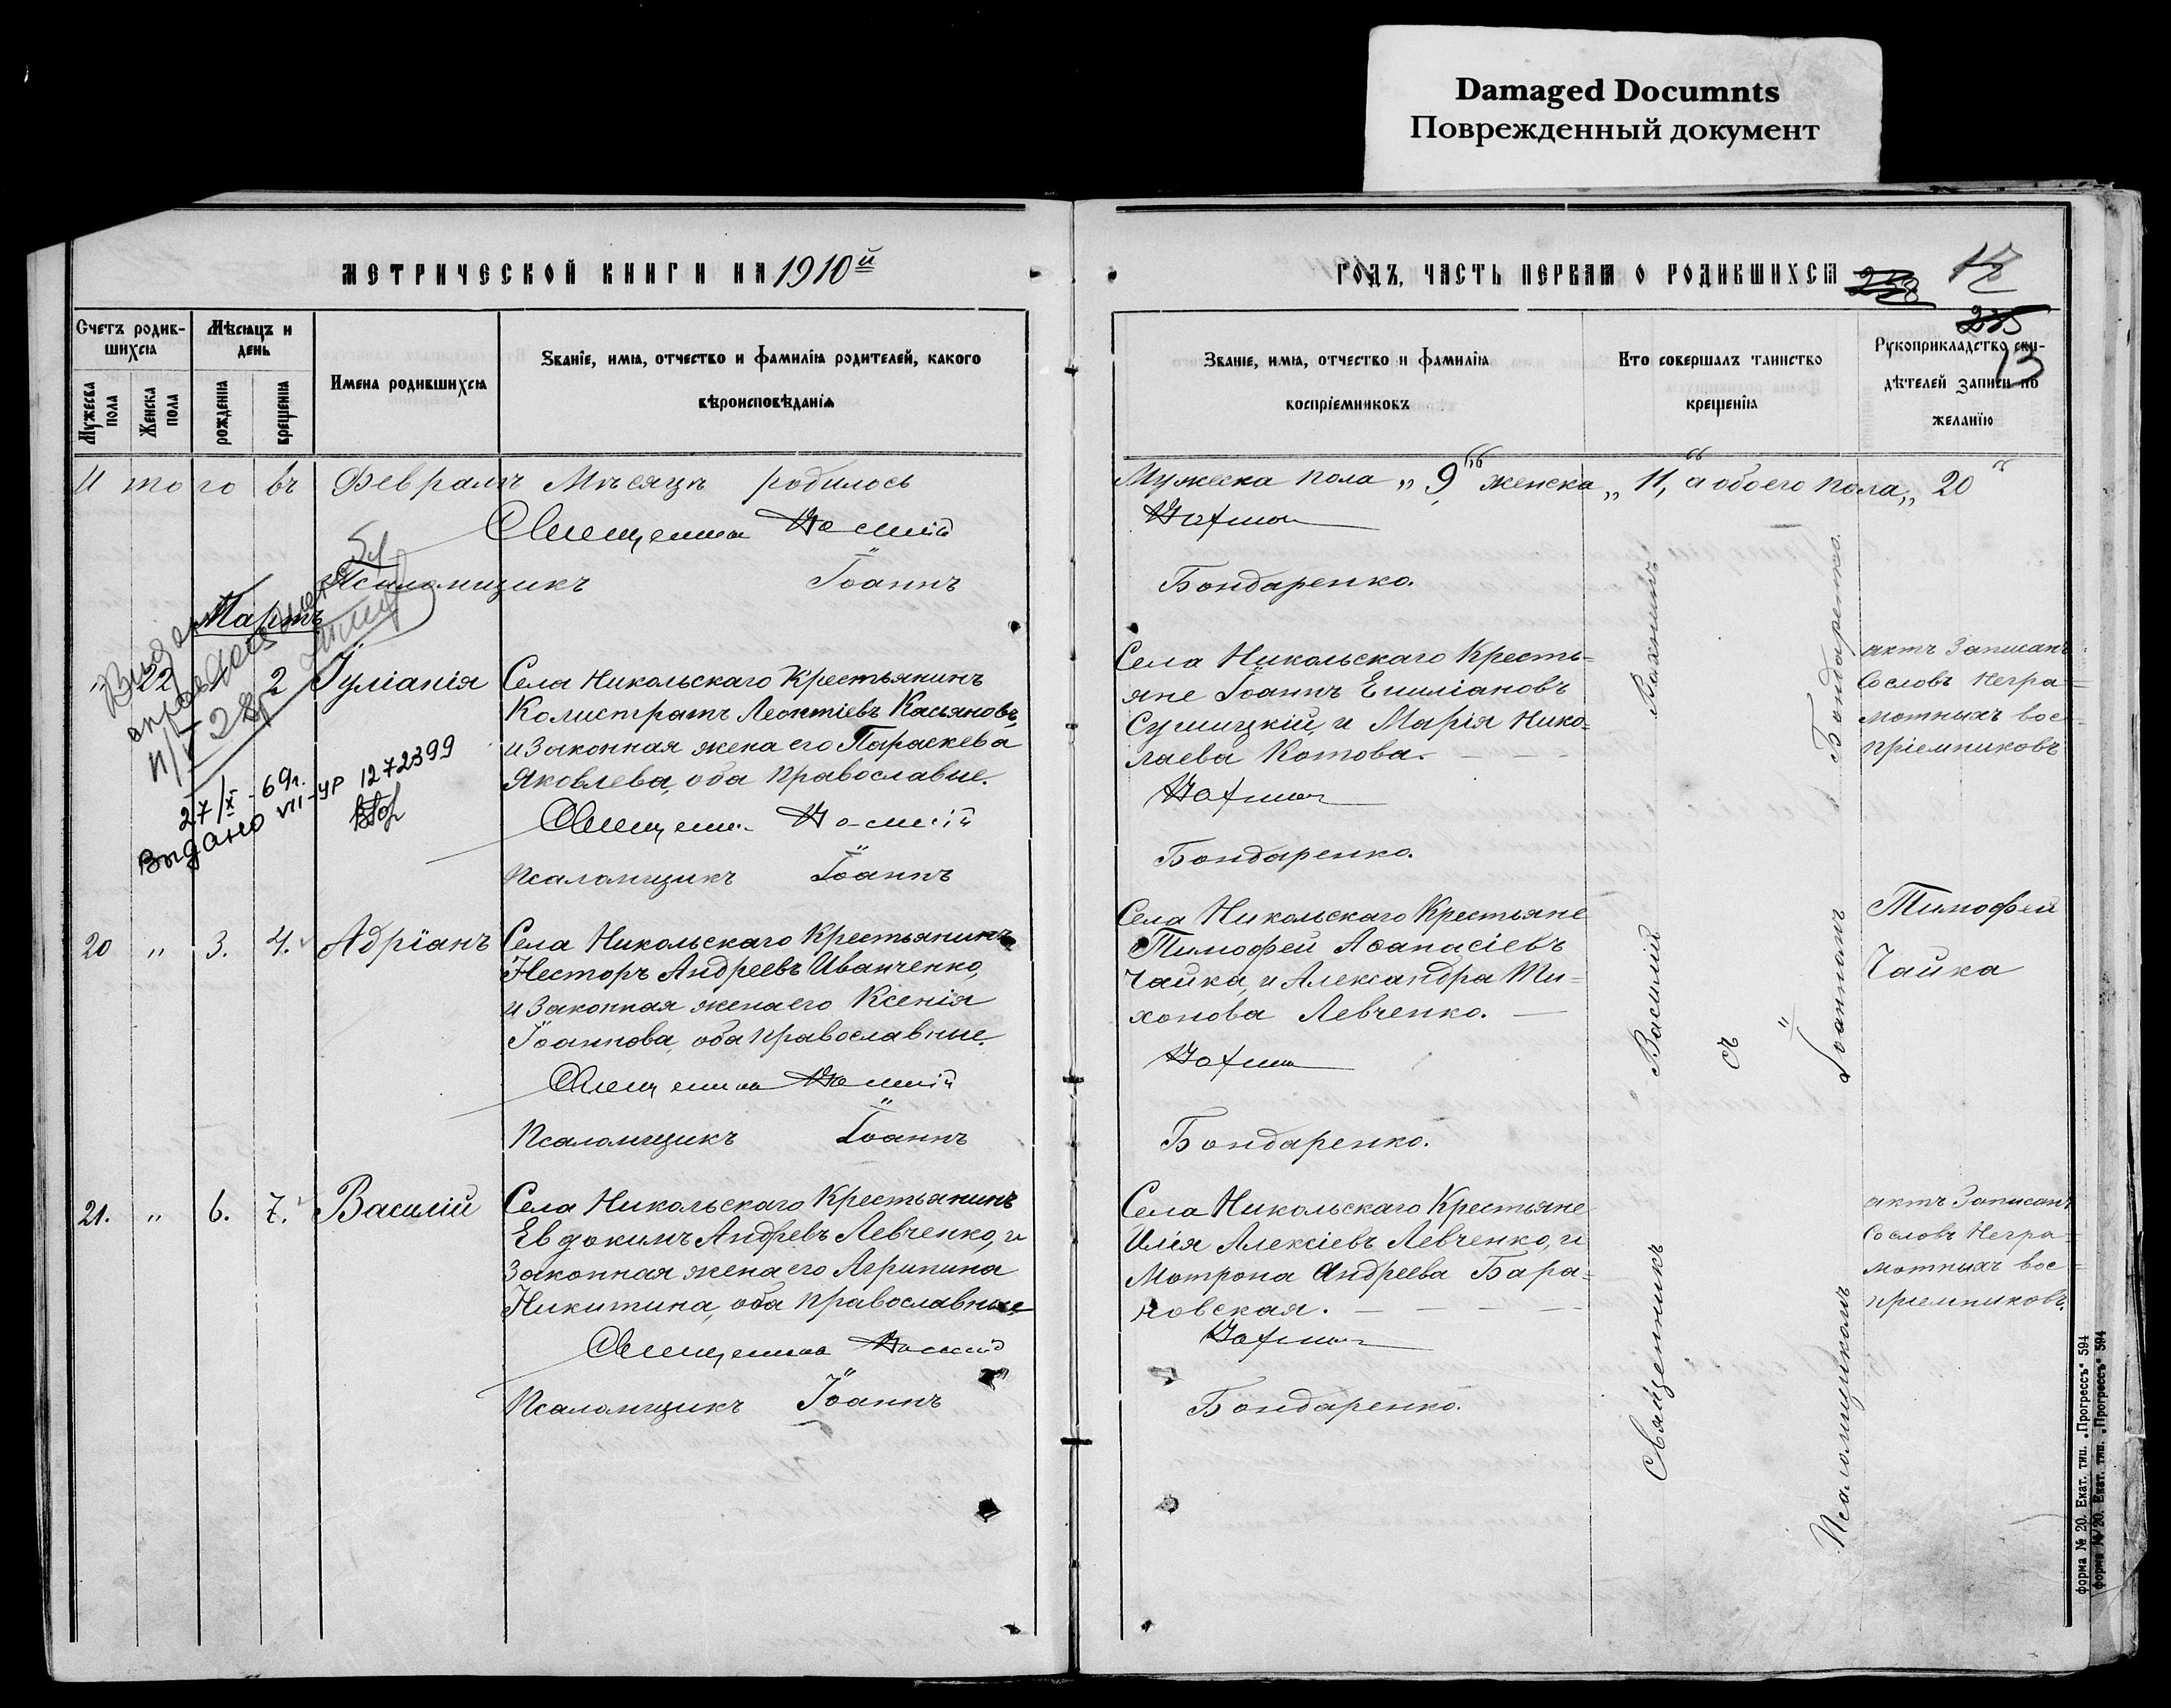 Damaged Documnts
Поврежденный документ
МЕТРИЧЕСКОЙ КНИГИ НА 1910й
Счетъ родив-
шихся
Мѣсяцъ и
день
Мужеска
пола
Женска
пола
рожденія
крещенія
Имена родившихся
Званіе, имя, отчество и фамилія родителей, какого
вѣроисповѣданія
Итого въ Февралѣ Мѣсяцѣ родилось
Священникъ Василій
Псаломщикъ Іоаннъ
Мартъ
„ 22 1 2 Іуліанія Села Никольскаго Крестьянинъ
Калистратъ Леонтіевъ Касьяновъ,
и Законная жена его Параскева
Яковлева, оба православные.
27/X-69г.
Выдано VII-УР 1272399
Священникъ Василій
Псаломщикъ Іоаннъ
20 „ 3. 4. Адріанъ Села Никольскаго Крестьянинъ
Несторъ Андреевъ Иванченко,
и Законная жена его Ксенія
Іоаннова, оба православные.
Священникъ Василій
Псаломщикъ Іоаннъ
21. „ 6. 7. Василій Села Никольскаго Крестьянинъ
Евдокимъ Андревъ Левченко, и
Законная жена его Агрипина
Никитина, оба православные
Священникъ Василій
Псаломщикъ Іоаннъ
ГОДЪ, ЧАСТЬ ПЕРВАЯ О РОДИВШИХСЯ
238
235
13
Званіе, имя, отчество и фамилія
воспріемниковъ
Кто совершалъ таинство
крещенія
Рукоприкладство сви-
дѣтелей записи по
желанію
Мужеска пола „9“ женска „11“, а обоего пола „20“
Бондаренко.
Села Никольскаго Кресть-
яне Іоаннъ Емиліановъ
Сушицкій, и Марія Нико-
лаева Котова.
Бондаренко.
актъ Записанъ
Со словъ Негра-
мотныхъ вос-
пріемниковъ
Села Никольскаго Крестьяне
Тимофей Аѳанасіевъ
Чайка, и Александра Ти-
хонова Левченко.
Бондаренко.
Тимофей
Чайка
Села Никольскаго Крестьяне
Илія Алексіевъ Левченко, и
Мотрона Андреева Бара-
новская.
Бондаренко.
актъ Записанъ
Со словъ Негра-
мотныхъ вос-
пріемниковъ.
Священникъ Василій
съ
Псаломщикомъ Іоанномъ Бондаренко.
форма № 20. Екат. тип. „Прогрессъ“ 594
форма № 20. Екат. тип. „Прогрессъ“ 594